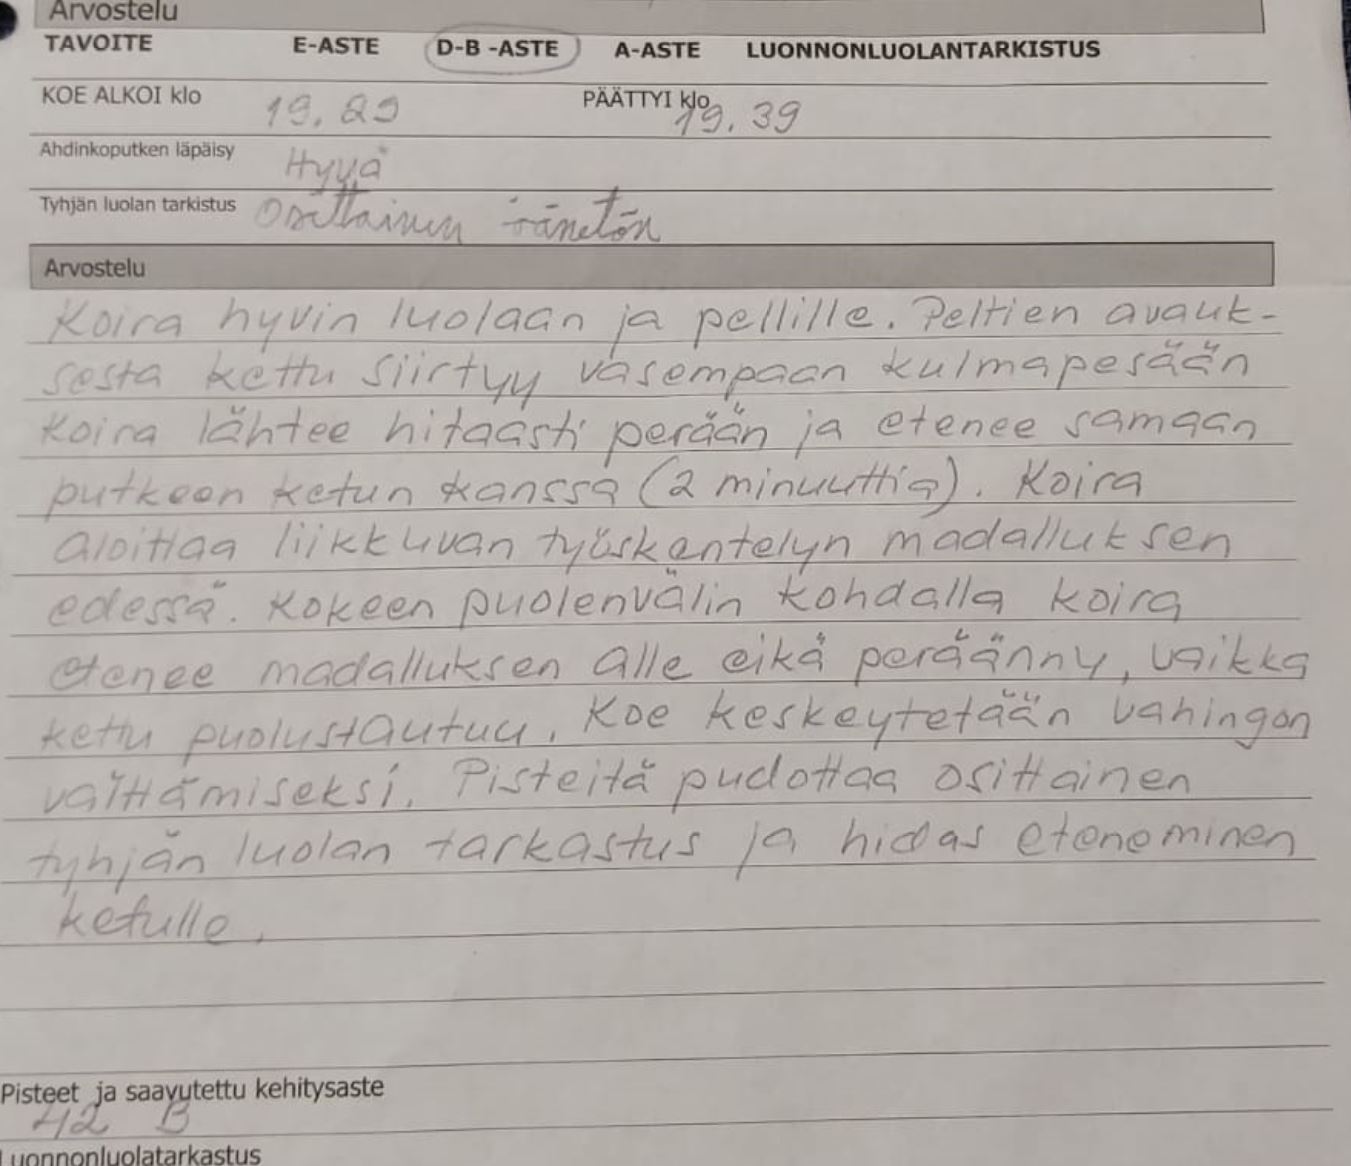 Arvostelu
TAVOITE E-ASTE D-B -ASTE A-ASTE LUONNONLUOLANTARKISTUS
KOE ALKOI klo 19.29 PÄÄTTYI klo 19.39
Ahdinkoputken läpäisy Hyvä
Tyhjän luolan tarkistus Osittainen äänetön
Arvostelu
Koira hyvin luolaan ja pellille. Peltien avauk-
sesta kettu siirtyy vasempaan kulmapesään
Koira lähtee hitaasti perään ja etenee samaan
putkeen ketun kanssa (2 minuuttia). Koira
aloittaa liikkuvan työskentelyn madalluksen
edessä. Kokeen puolenvälin kohdalla koira
etenee madalluksen alle eikä peräänny, vaikka
kettu puolustautuu. Koe keskeytetään vahingon
välttämiseksi. Pisteitä pudottaa osittainen
tyhjän luolan tarkastus ja hidas eteneminen
ketulle.
Pisteet ja saavutettu kehitysaste
42 B
Luonnonluolatarkastus